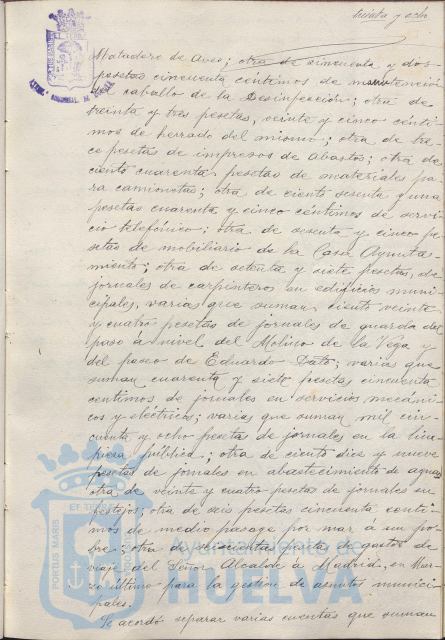 treinta y ocho
Matadero de Aves; otra de cincuenta y dos
pesetas cincuenta céntimos de manutención
del caballo de la Desinfección; otra de
treinta y tres pesetas, veinte y cinco cénti-
mos de herrado del mismo; otra de tre-
ce pesetas de impresos de Abastos; otra de
ciento cuarenta pesetas de materiales pa-
ra camionetas; otra de ciento sesenta y una
pesetas cuarenta y cinco céntimos de servi-
cio telefónico; otra de sesenta y cinco pe-
setas de mobiliario de la Casa Ayunta-
miento; otra de setenta y siete pesetas, de
jornales de carpinteros en edificios muni-
cipales, varias que suman ciento veinte
y cuatro pesetas de jornales de guarda del
paso á nivel del Molino de la Vega y
del paseo de Eduardo Dato; varias que
suman cuarenta y siete pesetas, cincuenta
céntimos de jornales en servicios mecáni-
cos y eléctricos; varias que suman mil cin-
cuenta y ocho pesetas de jornales en la lim-
pieza pública; otra de ciento diez y nueve
pesetas de jornales en abastecimiento de aguas
otra de veinte y cuatro pesetas de jornales en
festejos; otra de seis pesetas cincuenta cénti-
mos de medio pasage por mar á un po-
bre; otra de seiscientas pesetas de gastos de
viaje del Señor Alcalde á Madrid, en Mar-
zo último para la gestión de asuntos munici-
pales.
Se acordó separar varias cuentas que suman
PORTUS MARIS ET TERRAE
Ayuntamiento de
HUELVA